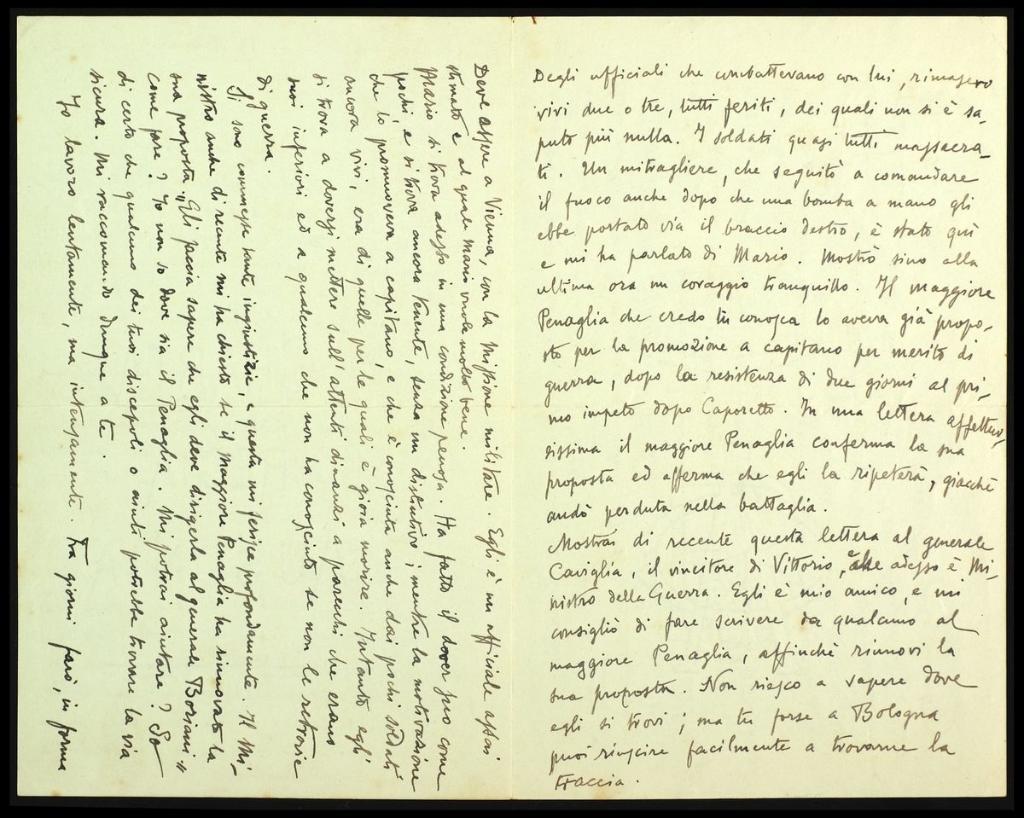 Degli ufficiali che combattevano con lui, rimasero
vivi due o tre, tutti feriti, dei quali non si è sa-
puto più nulla. I soldati quasi tutti massacra-
ti. Un mitragliere, che seguitò a comandare
il fuoco anche dopo che una bomba a mano gli
ebbe portato via il braccio destro, è stato qui
e mi ha parlato di Mario. Mostrò sino alla
ultima ora un coraggio tranquillo. Il maggiore
Penaglia che credo tu conosca lo aveva già propo-
sto per la promozione a capitano per merito di
guerra, dopo la resistenza di due giorni al pri-
mo impeto dopo Caporetto. In una lettera affettuo-
sissima il maggiore Penaglia conferma la sua
proposta ed afferma che egli la ripeterà, giacchè
andò perduta nella battaglia.
Mostrai di recente questa lettera al generale
Caviglia, il vincitore di Vittorio, che adesso è Mi-
nistro della Guerra. Egli è mio amico, e mi
consigliò di fare scrivere da qualcuno al
maggiore Penaglia, affinchè rinnovi la
sua proposta. Non riesco a sapere dove
egli si trovi; ma tu forse a Bologna
puoi riuscire facilmente a trovarne la
traccia.
Deve essere a Vienna, con la Missione militare. Egli è un ufficiale assai
stimato e al quale Mario vuole molto bene.
Mario si trova adesso in una condizione penosa. Ha fatto il dover suo come
pochi, e si trova ancora tenente, senza un distintivo; mentre la motivazione
che lo promoveva a capitano, e che è conosciuta anche dai pochi soldati
ancora vivi, era di quelle per le quali è gioia morire. Intanto egli
si trova a doversi mettere sull'attenti dinanzi a parecchi che erano
suoi inferiori ed a qualcuno che non ha conosciuto se non le retrovie
di guerra.
Si sono commesse tante ingiustizie, e questa mi ferisce profondamente. Il Mi-
nistro anche di recente mi ha chiesto se il maggiore Penaglia ha rinnovato la
sua proposta "Gli faccia sapere che egli deve dirigerla al generale Boriani"
come fare? Io non so dove sia il Penaglia. Mi potrai aiutare? So
di certo che qualcuno dei tuoi discepoli o amici potrebbe trovare la via
sicura. Mi raccomando dunque a te.
Io lavoro lentamente, ma intensamente. Fra giorni farò, in forma